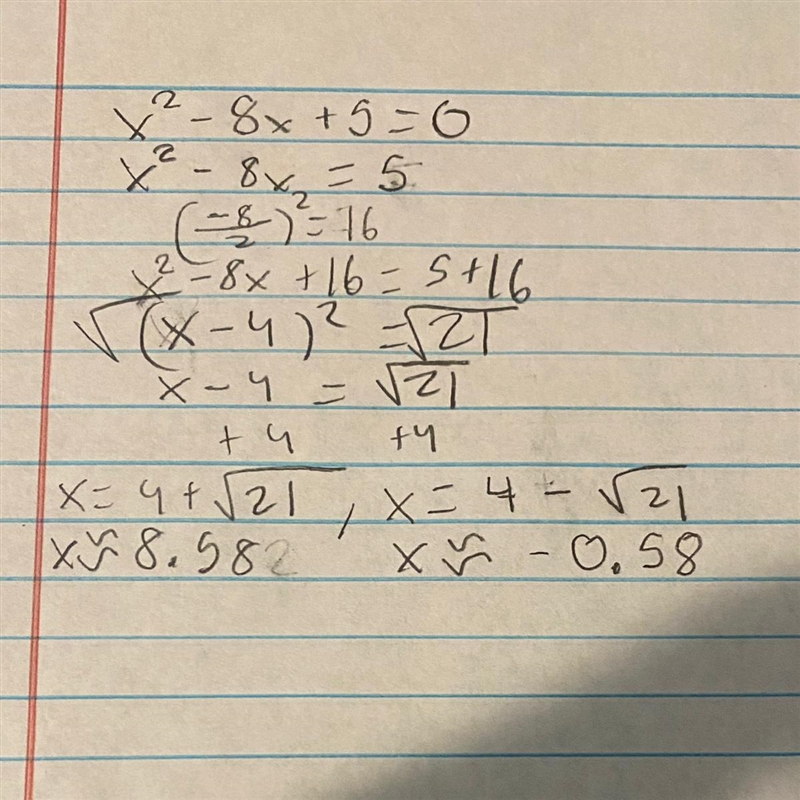 x² - 8x + 5 = 0
x² - 8x = 5
(-8/2)² = 16
x² - 8x + 16 = 5 + 16
√(x - 4)² = √21
x - 4 = √21
+ 4 +4
x = 4 + √21 , x = 4 - √21
x ≈ 8.582 x ≈ - 0.58